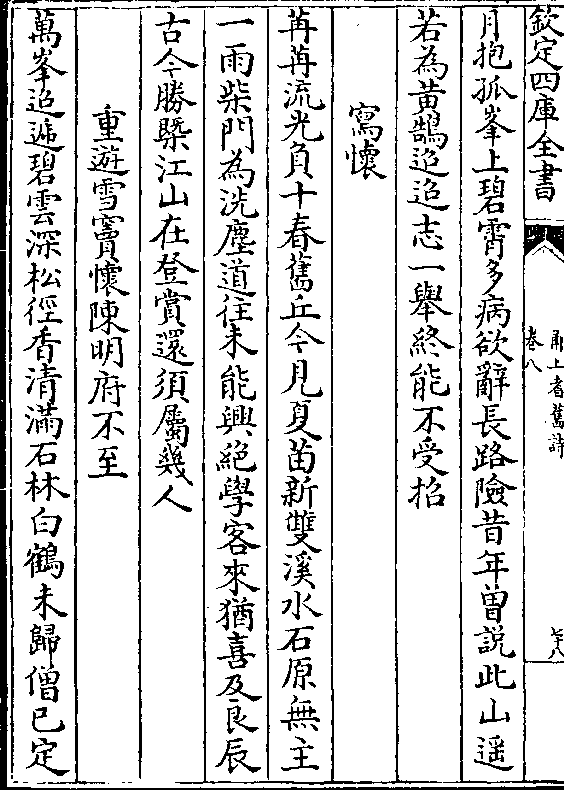 欽定四庫全書
甬上耆舊詩
卷八
月抱孤峯上碧霄多病欲辭長路險昔年曽説此山遥
若為黄鵠迢迢志一舉終能不受招
寫懷
苒苒流光負十春舊丘今見夏苗新雙溪水石原無主
一雨柴門為洗塵道往未能興絕學客來猶喜及良辰
古今勝槩江山在登賞還須屬幾人
重遊雪竇懷陳明府不至
萬峯迢遞碧雲深松徑香清滿石林白鶴未歸僧已定